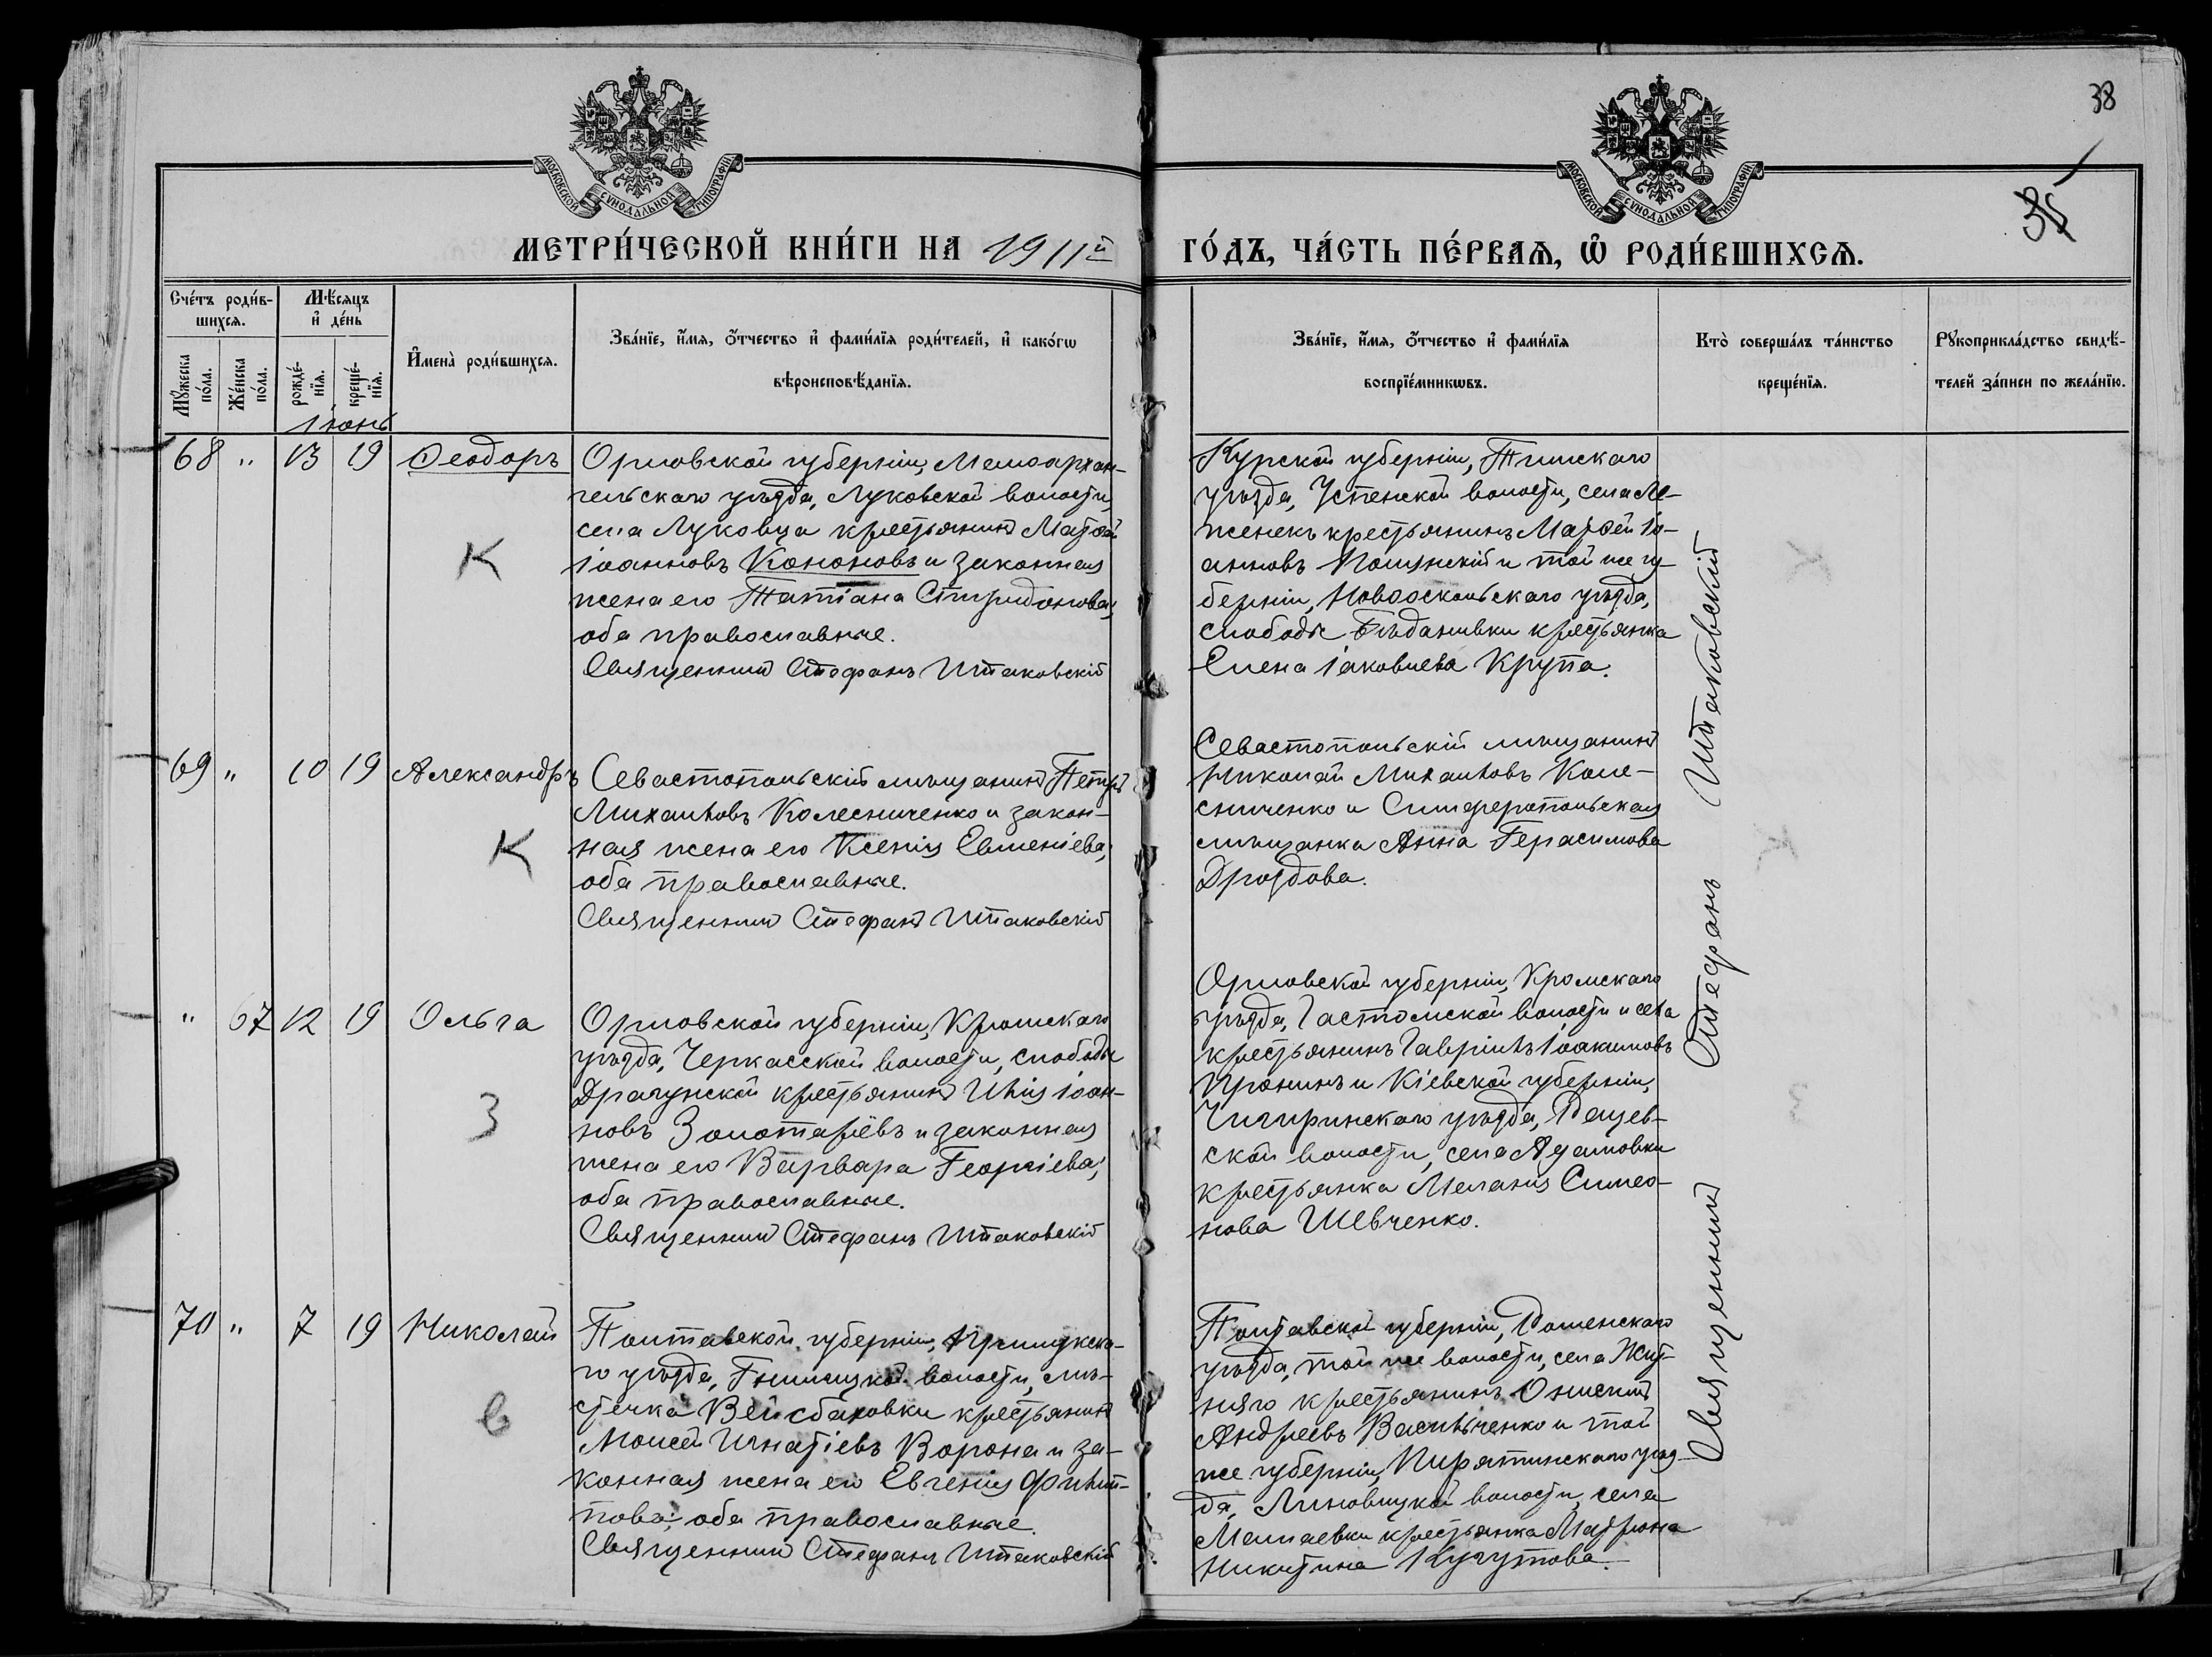 38
35
МОСКОВСКОЙ СѴНОДАЛЬНОЙ ТИПОГРАФІИ
МОСКОВСКОЙ СѴНОДАЛЬНОЙ ТИПОГРАФІИ
МЕТРИ́ЧЕСКОЙ КНИ́ГИ НА 1911й
ГО́ДЪ, ЧА́СТЬ ПЕ́РВАѦ, Ѡ҆ РОДИ́ВШИХСѦ.
Сче́тъ роди́в-
шихсѧ.
Мꙋ́жеска по́ла.
Же́нска по́ла.
Мѣ́сѧцъ
и҆ де́нь
рожде́-
нїѧ.
креще́-
нїѧ.
И҆мена̀ роди́вшихсѧ.
Зва́нїе, и҆́мѧ, ѻ҆́тчество и҆ фами́лїѧ роди́телей, и҆ како́гѡ
вѣроисповѣ́данїѧ.
Зва́нїе, и҆́мѧ, ѻ҆́тчество и҆ фами́лїѧ
воспрїе́мникѡвъ.
Кто̀ соверша́лъ та́инство
креще́нїѧ.
Рꙋкоприкла́дство свидѣ́-
телей за́писи по жела́нїю.
Іюнь
68 " 13 19 Ѳеодоръ
К
Орловской губерніи, Малоархан-
гельскаго уѣзда, Луковской волости,
села Луковца крестьянинъ Матѳей
Іоанновъ Кононовъ и законная
жена его Татіана Спиридонова;
оба православные.
Священникъ Стефанъ Шпаковскій
Курской губерніи, Тимскаго
уѣзда, Успенской волости, села Ле-
женекъ крестьянинъ Матѳей Іо-
анновъ и той же гу-
берніи, Новооскольскаго уѣзда,
слободы крестьянка
Елена Іаковлева Крупа.
69 " 10 19 Александръ
К
Севастопольскій мѣщанинъ Петръ
Михаиловъ Колесниченко и закон-
ная жена его Ксенія Евменіева;
оба православные.
Священникъ Стефанъ Шпаковскій
Севастопольскій мѣщанинъ
Николай Михаиловъ Коле-
сниченко и Симферопольская
мѣщанка Анна Герасимова
Дроздова.
" 67 12 19 Ольга
З
Орловской губерніи, Кромскаго
уѣзда, Черкасской волости, слободы
Драгунской крестьянинъ Илія Іоан-
новъ Золотарёвъ и законная
жена его Варвара Георгіева;
оба православные.
Священникъ Стефанъ Шпаковскій
Орловской губерніи, Кромскаго
уѣзда, Гастомской волости и села
крестьянинъ Гавріилъ Іоакимовъ
Пронинъ и Кіевской губерніи,
Чигиринскаго уѣзда, Рацев-
ской волости, села Адамовки
крестьянка Меланія Симео-
нова Шевченко.
70 " 7 19 Николай
В
Полтавской губерніи, Прилукска-
го уѣзда, Гнилицкой волости, мѣ-
стечка Вейсбаховки крестьянинъ
Моисей Игнатіевъ Ворона и за-
конная жена его Евгенія Филип-
пова; оба православные.
Священникъ Стефанъ Шпаковскій
Полтавской губерніи, Роменскаго
уѣзда, той же волости, села Жит-
няго крестьянинъ Онисимъ
Андреевъ Васильченко и той
же губерніи, Пирятинскаго уѣз-
да, Линовицкой волости, села
Малаевки крестьянка Матрона
Никитина
Священникъ Стефанъ Шпаковскій